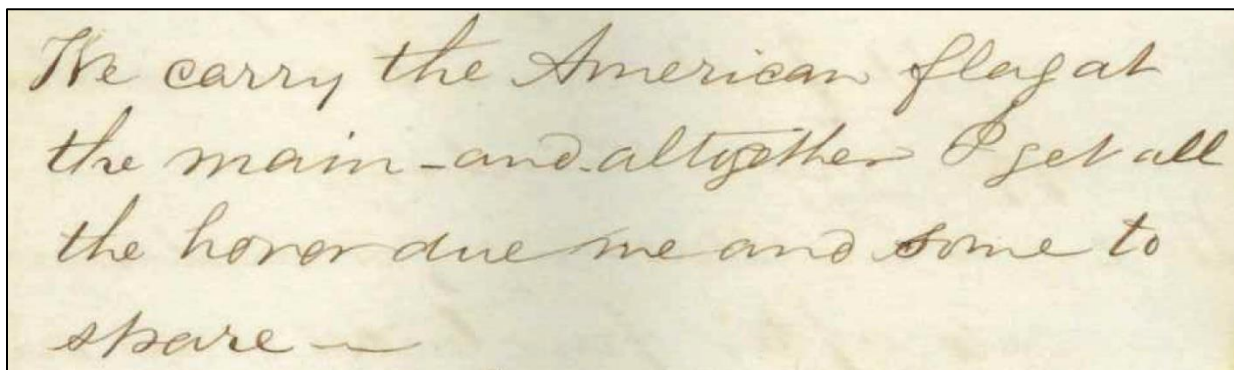 We carry the American flag at
the main - and - altogether I get all
the honor due me and some to
spare —